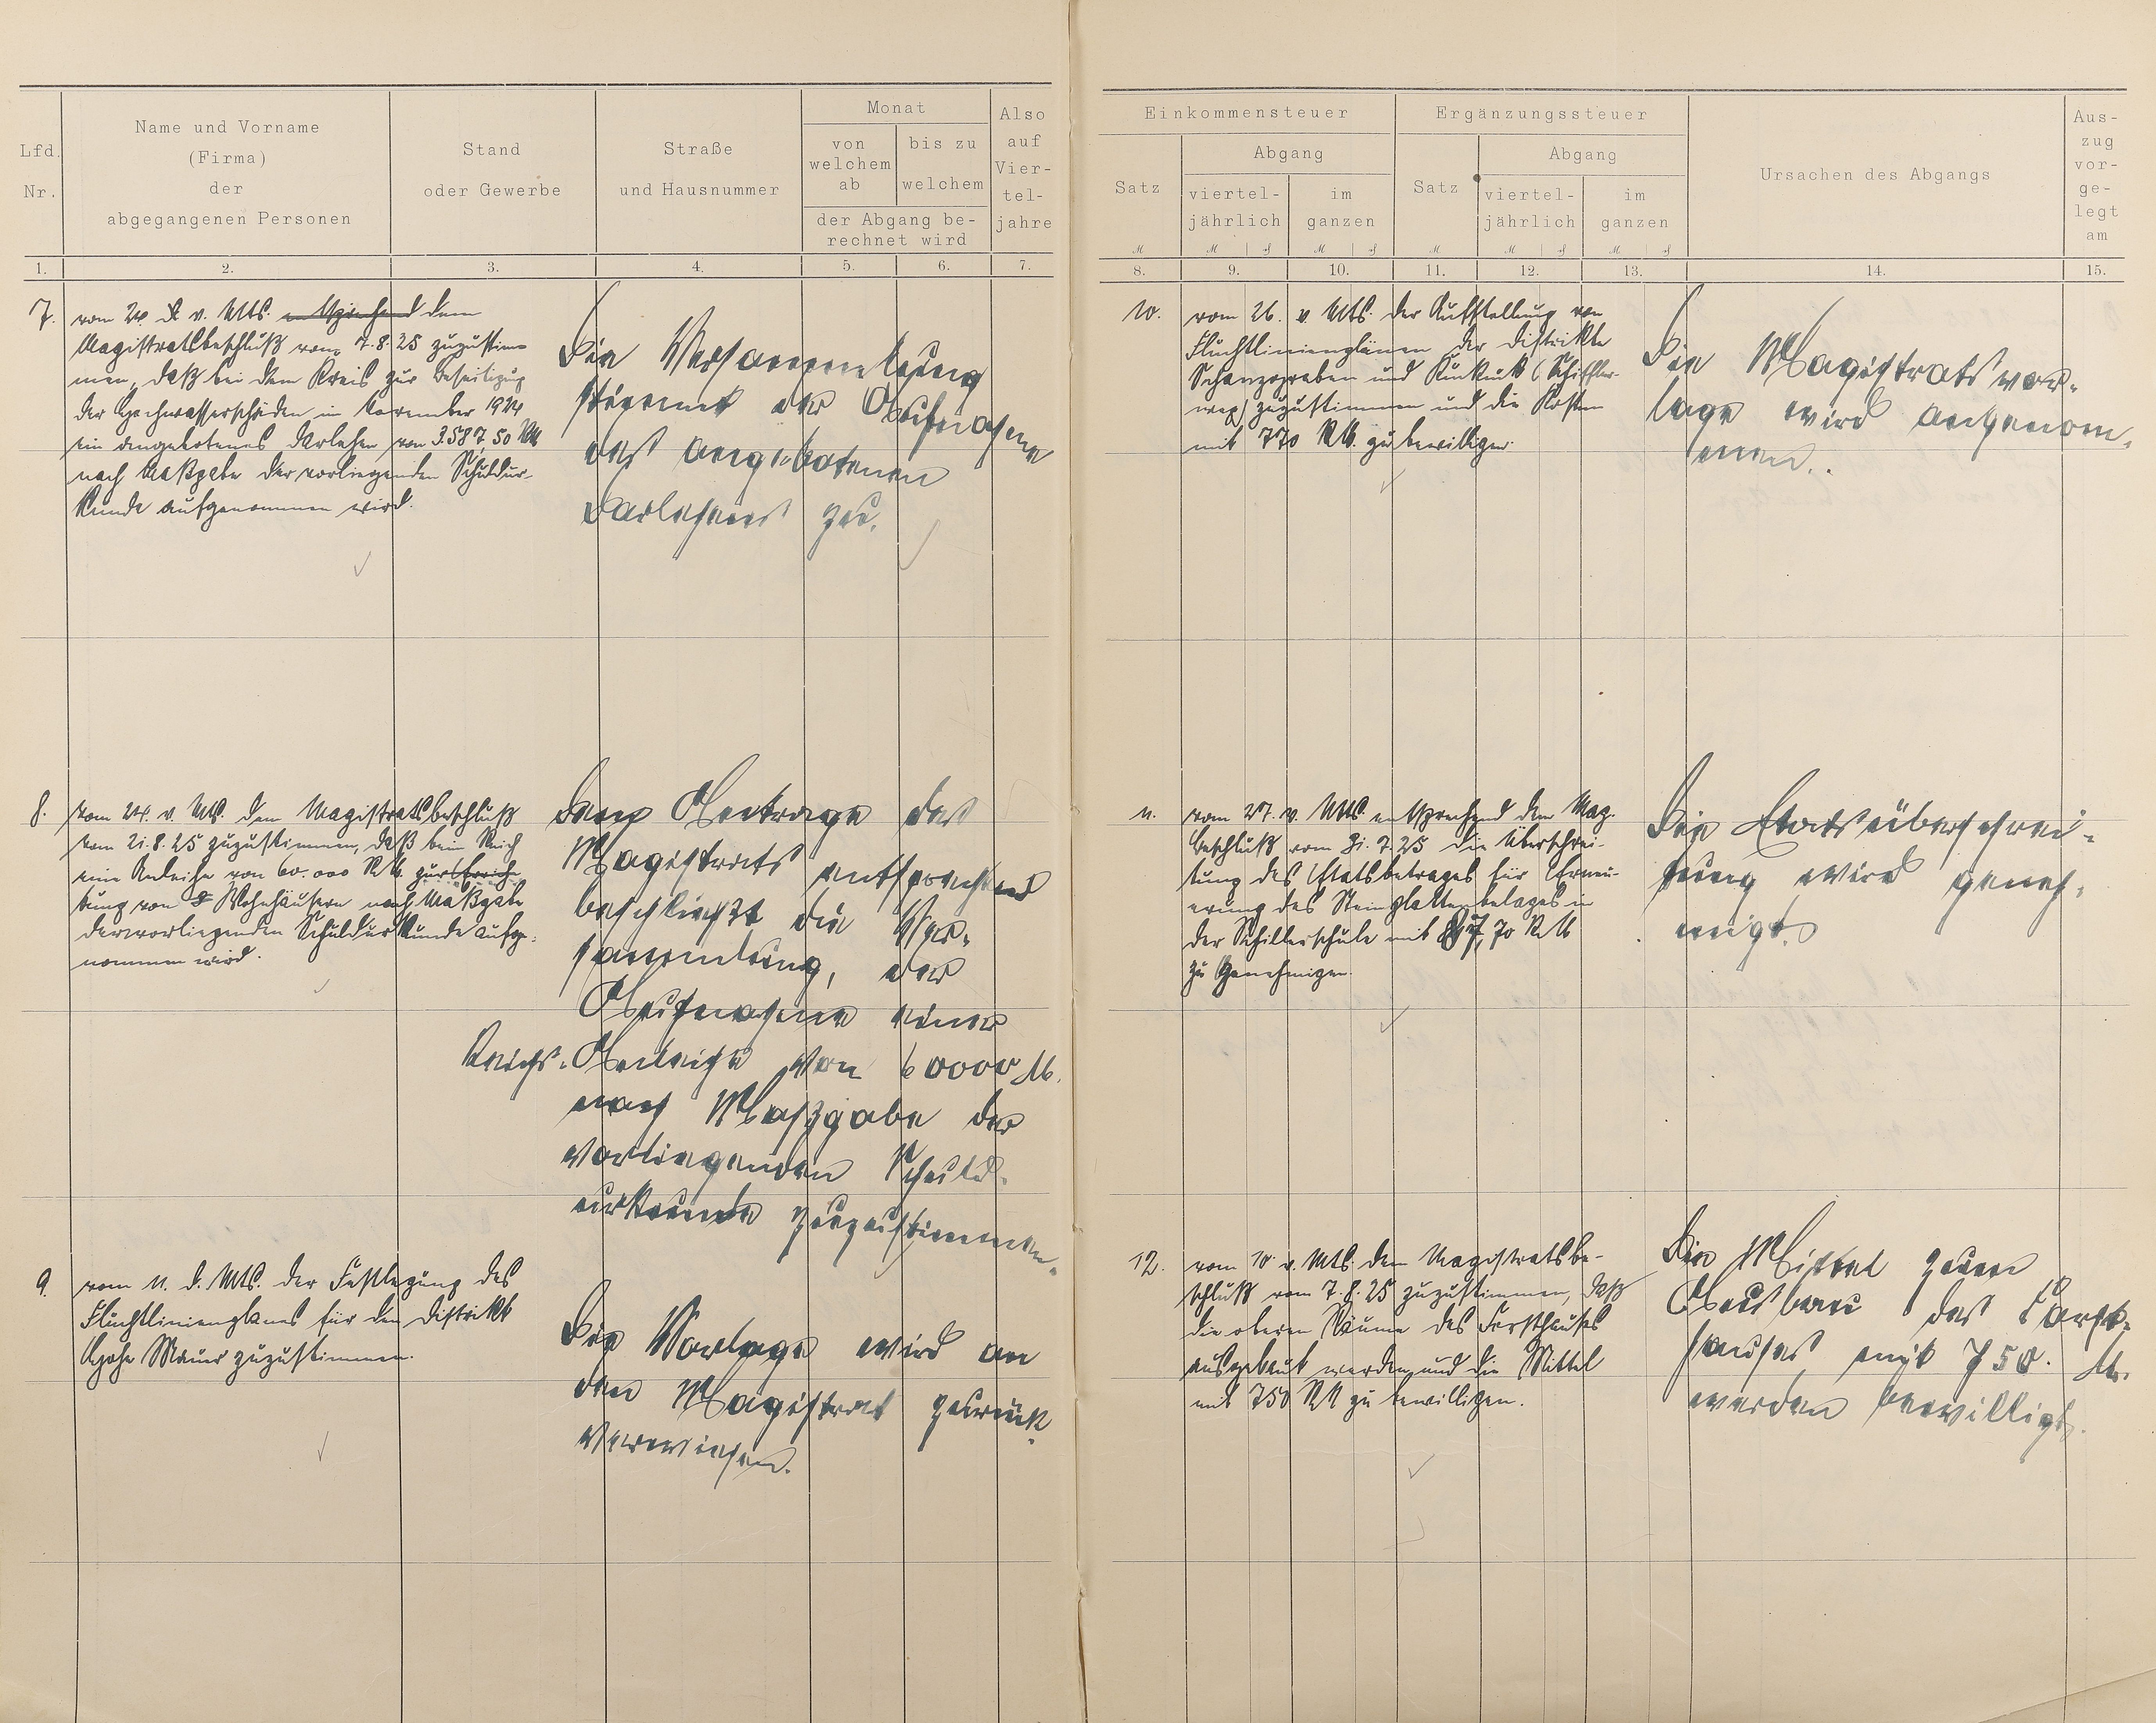 Lfd. Nr.
Name und Vorname
(Firma)
der
abgegangenen Personen
Stand
oder Gewerbe
Straße
und Hausnummer
Monat
von
welchem
ab
bis zu
welchem
der Abgang be-
rechnet wird
Also
auf
Vier-
tel-
jahre
1. 2. 3. 4. 5. 6. 7.
7. vom 24. v. Mts. entsprechend dem
Magistratsbeschluß vom 7.8.25 zuzustim-
men, daß bei dem Kreis zur Beseitigung
der Hochwasserschäden im November 1924
ein angebotenes Darlehen von 3587,50 RM
nach Maßgabe der vorliegenden Schuldur-
kunde aufgenommen wird.
Die Versammlung
stimmt der Aufnahme
des angebotenen
Darlehens zu.
8. vom 24. v. Mts. dem Magistratsbeschluß
vom 21.8.25 zuzustimmen, daß beim Reich
eine Anleihe von 60.000 RM. zur Errich-
tung von 8 Wohnhäusern nach Maßgabe
der vorliegenden Schuldurkunde aufge-
nommen wird.
Dem Antrage des
Magistrats entsprechend
beschließt die Ver-
sammlung, der
Aufnahme einer
Reichs-Anleihe von 60000 M.
nach Maßgabe der
vorliegenden Schuld-
urkunde zuzustimmen.
9. vom 11. d. Mts. der Festlegung des
Fluchtlinienplanes für den Distrikt
Hohe Mauer zuzustimmen.
Die Vorlage wird an
den Magistrat zurück
verwiesen.
Einkommensteuer
Satz
Abgang
viertel-
jährlich
im
ganzen
Ergänzungssteuer
Satz
Abgang
viertel-
jährlich
im
ganzen
Ursachen des Abgangs
Aus-
zug
vor-
ge-
legt
am
8. 9. 10. 11. 12. 13. 14. 15.
10. vom 26. v. Mts. der Aufstellung von
Fluchtlinienplänen der Distrikte
Schanzgraben und Kuckuck (Schiffer-
weg) zuzustimmen und die Kosten
mit 770 RM. zu bewilligen.
Die Magistratsvor-
lage wird angenom-
men.
11. vom 27. v. Mts. entsprechend dem Mag.
Beschluß vom 31.7.25 die Überschrei-
tung des Etatsbetrages für Erneu-
erung des Steinplattenbelages in
der Schillerschule mit 87,70 RM
zu genehmigen.
Die Etatsüberschrei-
tung wird geneh-
migt.
12. vom 10. v. Mts. dem Magistratsbe-
schluß vom 7.8.25 zuzustimmen, daß
die oberen Räume des Forsthauses
ausgebaut werden und die Mittel
mit 750 RM zu bewilligen.
Die Mittel zum
Ausbau des Forst-
hauses mit 750. M.
werden bewilligt.